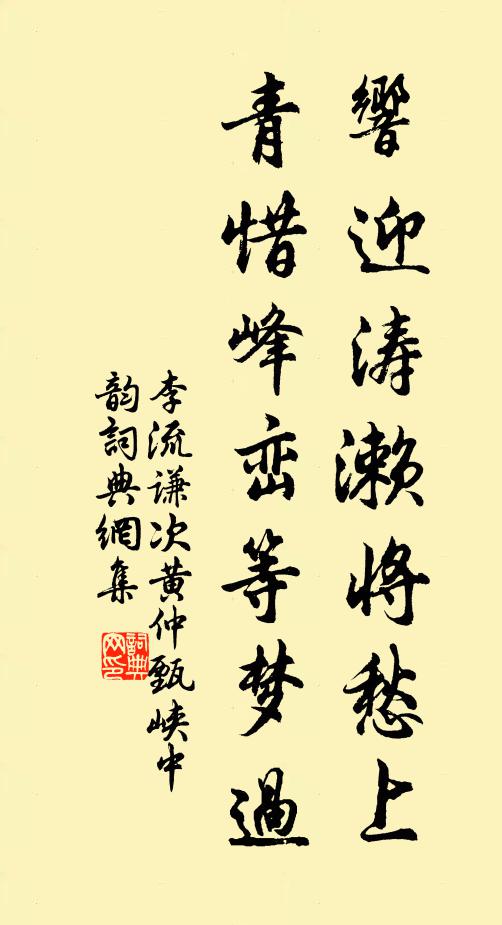 響迎涛濑将愁上
青惜峰峦等梦過
李流谦次黄仲甄峡中
韵詞典網集
詞典网印